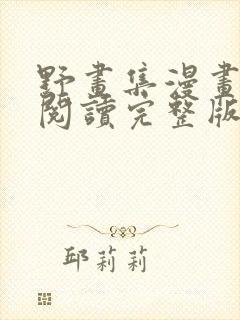 野畫集漫畫
閱讀完整版
邱莉莉